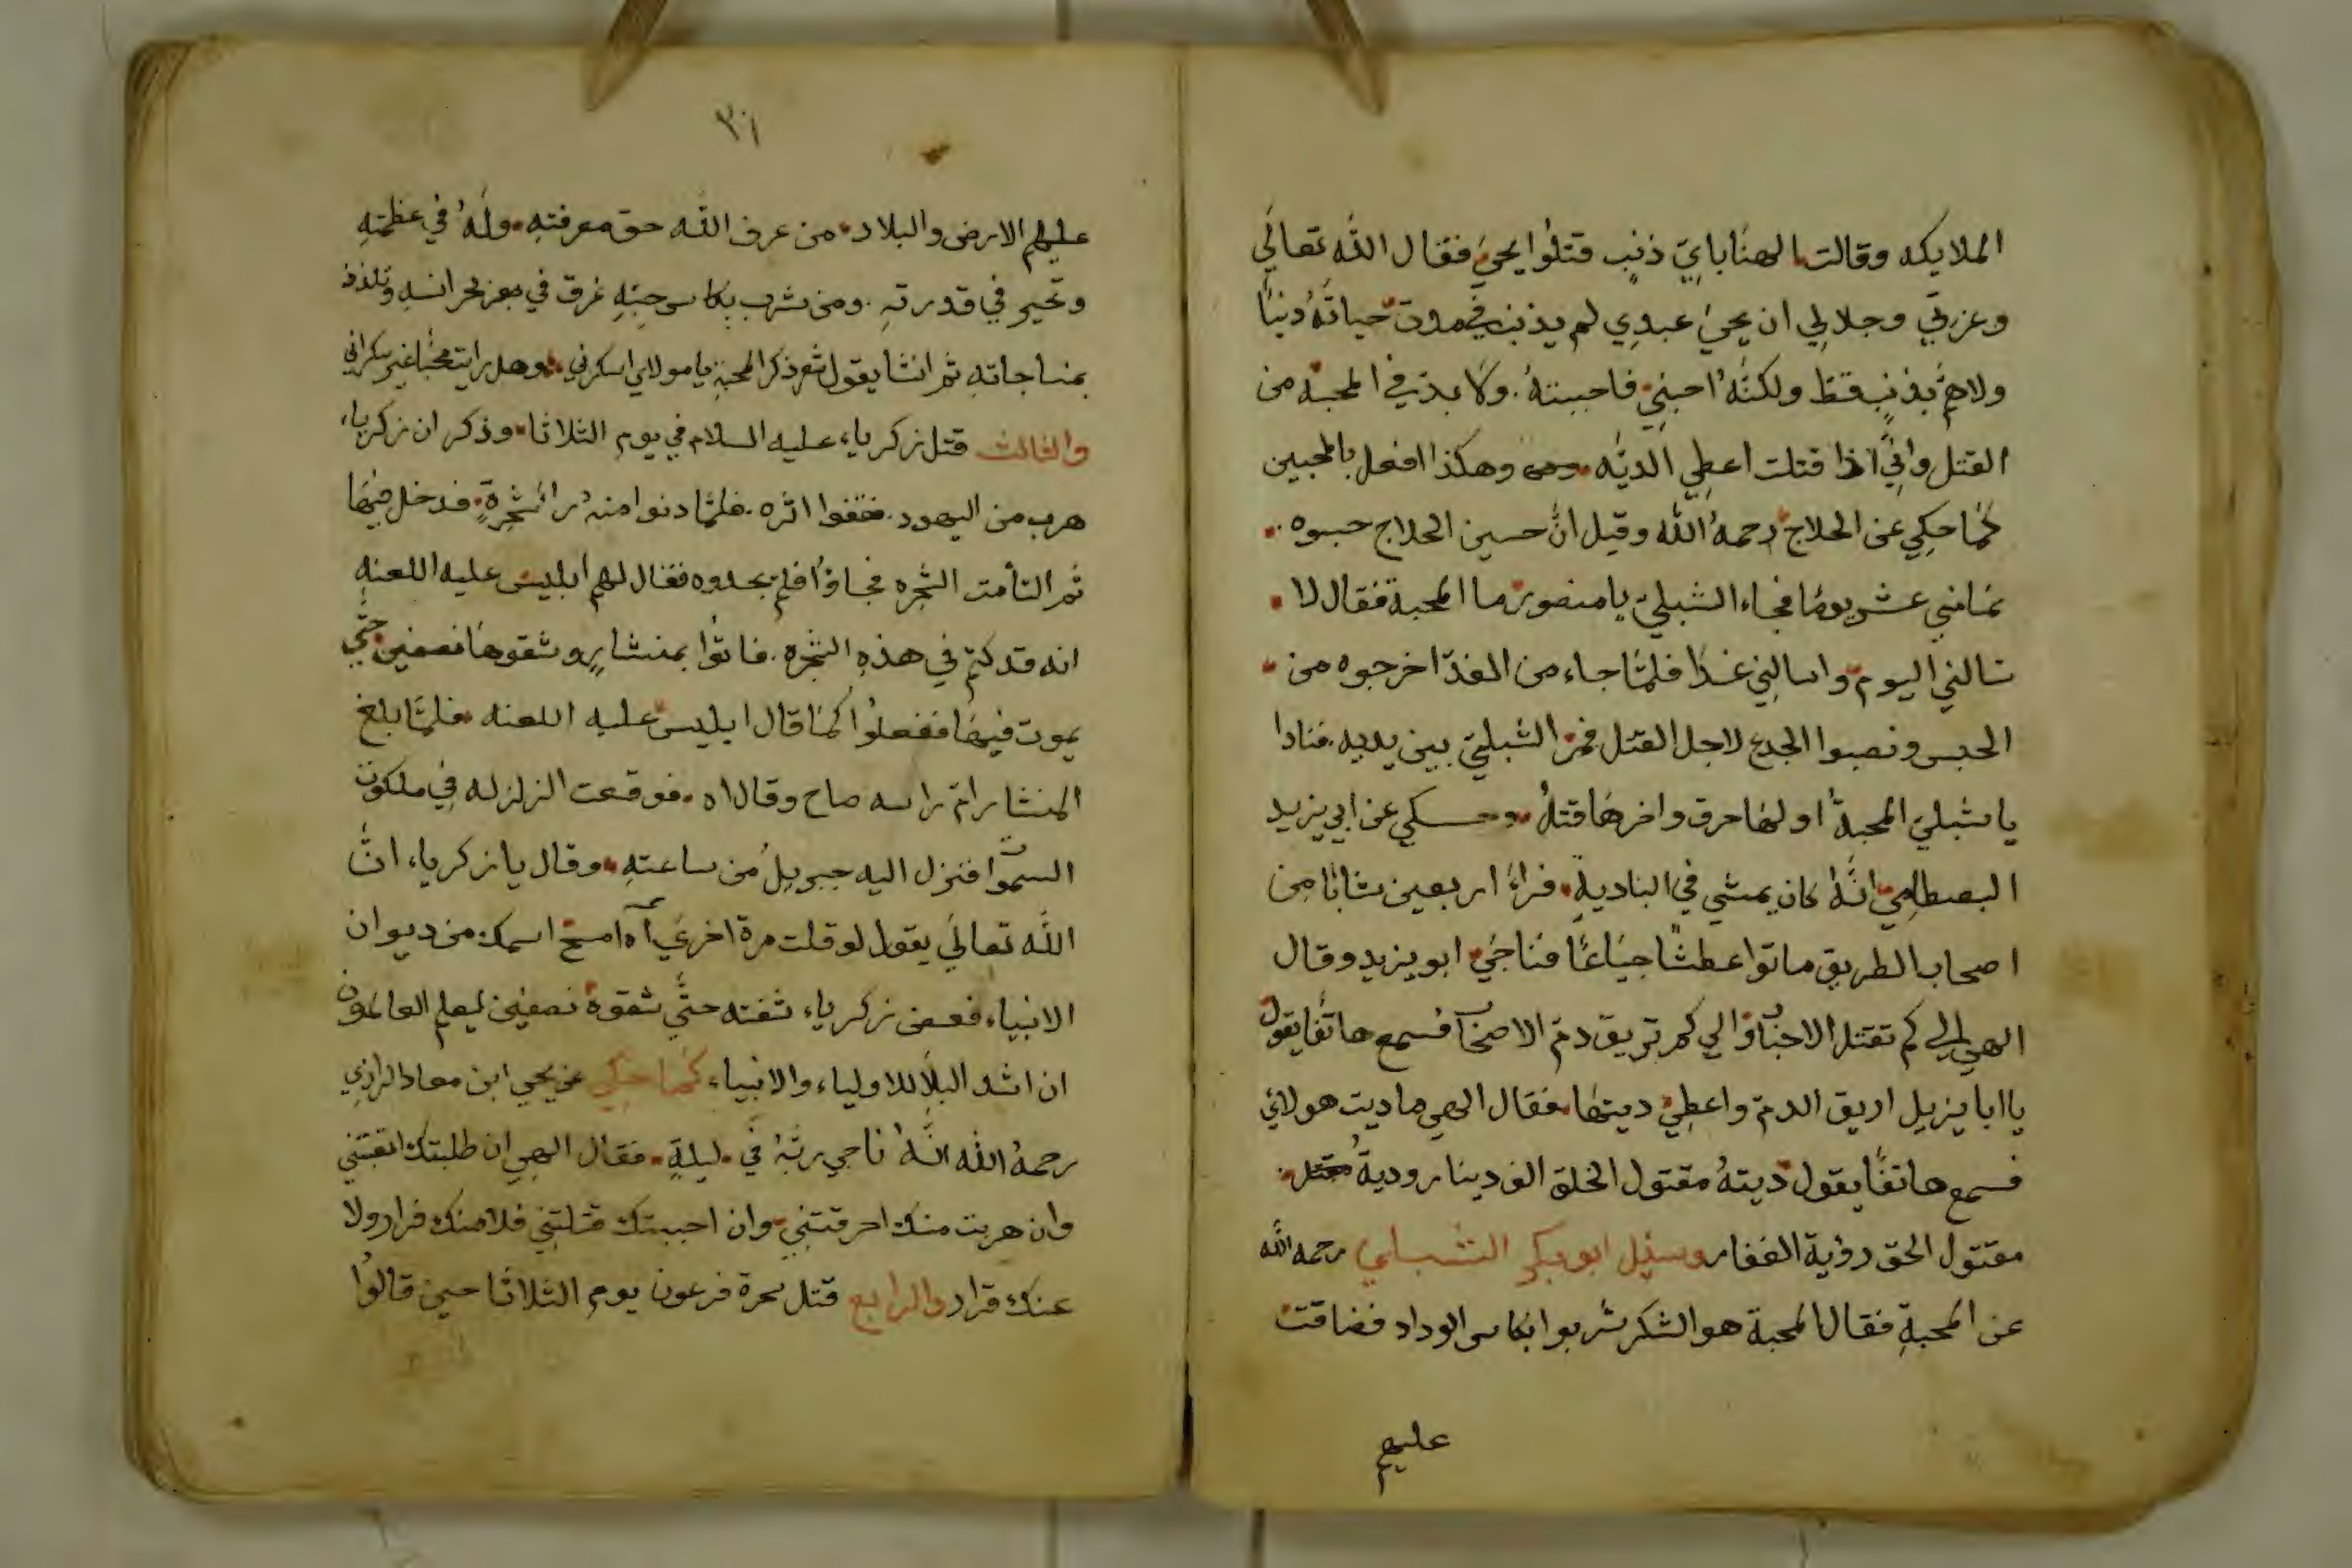 الملايكه وقالت الهنا باي ذنب قتلوا يحيى فقال الله تعالى
وعزتي وجلالي ان يحيى عبدي لم يذنب في مدت حياته دنيا
ولا هم بذنب قط ولكنه احبني فاحببته ولا بد في المحبة من
القتل واني اذا قتلت اعطي الديه وهكذا افعل بالمحبين
كما حكي عن الحلاج رحمه الله وقيل ان حسين الحلاج حبسوه
ثمانية عشر يوما فجاء الشبلي يا منصور ما المحبة فقال لا
تسالني اليوم واسالني غدا فلما جاء من الغد اخرجوه من
الحبس ونصبوا الجدع لاجل القتل فمر الشبلي بين يديه فنادا
يا شبلي المحبة اولها حرق واخرها قتل وحكي عن ابي يزيد
البصطامي انه كان يمشي في البادية فراء اربعين شابا من
اصحاب الطريق ماتوا عطشا جياعا فناجى ابو يزيد وقال
الهي الي كم تقتل الاحباب والي كم تريق دم الاصحاب فسمع هاتفا يقول
يا ابا يزيد اريق الدم واعطي ديتها فقال الهي ما ديت هولاي
فسمع هاتفا يقول ديته مقتول الخلق الف دينار ودية
مقتول الحق رؤية الغفار وسئل ابو بكر الشبلي رحمه الله
عن المحبة فقال المحبة هو الشكر شربوا بكاس الوداد فضاقت
عليهم
٣١
عليهم الارض والبلاد من عرف الله حق معرفته وله في عظمته
وتحير في قدرته ومن شرب بكاس حبته غرق في بحر انسه وتلذذ
بمناجاته ثم انشا يقول شعر ذكر المحبة يا مولاي اسكرني وهل رايت محبا غير سكراني
والثالث قتل زكرياء عليه السلام في يوم الثلاثا وذكر ان زكرياء
هرب من اليهود فقفوا اثره فلما دنوا منه را شجرة فدخل فيها
ثم التأمت الشجره فجاؤا فلم يجدوه فقال لهم ابليس عليه اللعنه
انه قد كتم في هذه الشجره فاتوا بمنشار وشقوها نصفين حتى
يموت فيها ففعلوا كما قال ابليس عليه اللعنه فلما بلغ
المنشار ام راسه صاح وقال اه فوقعت الزلزله في ملكوت
السموات فنزل اليه جبريل من ساعته وقال يا زكرياء ان
الله تعالى يقول لو قلت مرة اخرى آه امسح اسمك من ديوان
الانبياء فعض زكرياء شفته حتى شقوه نصفين ليعلم العالمون
ان اشد البلا للاولياء والانبياء كما حكي عن يحي ابن معاد الرازي
رحمه الله انه ناجي ربه في ليلة فقال الهي ان طلبتك اتعبتني
وان هربت منك احرقتني وان احببتك قتلتني فلا منك فرار ولا
عنك قرار والرابع قتل سحرة فرعون يوم الثلاثا حين قالوا